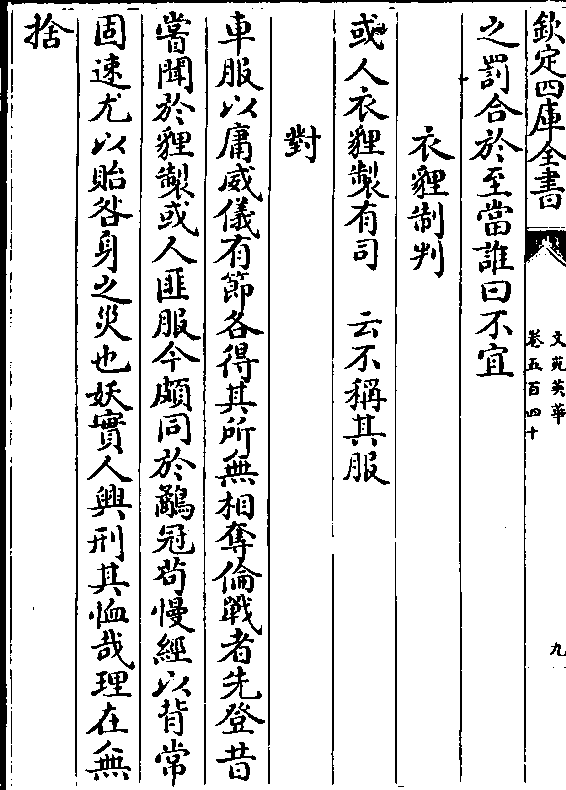 欽定四庫全書
文苑英華
卷五百四十
九
之罰合於至當誰曰不宜
衣貍制判
或人衣貍製有司　云不稱其服
對
車服以庸威儀有節各得其所無相奪倫戰者先登昔
嘗聞於貍製或人匪服今頗同於鷸冠苟慢經以背常
固速尤以貽咎身之災也妖實人興刑其恤哉理在無
捨